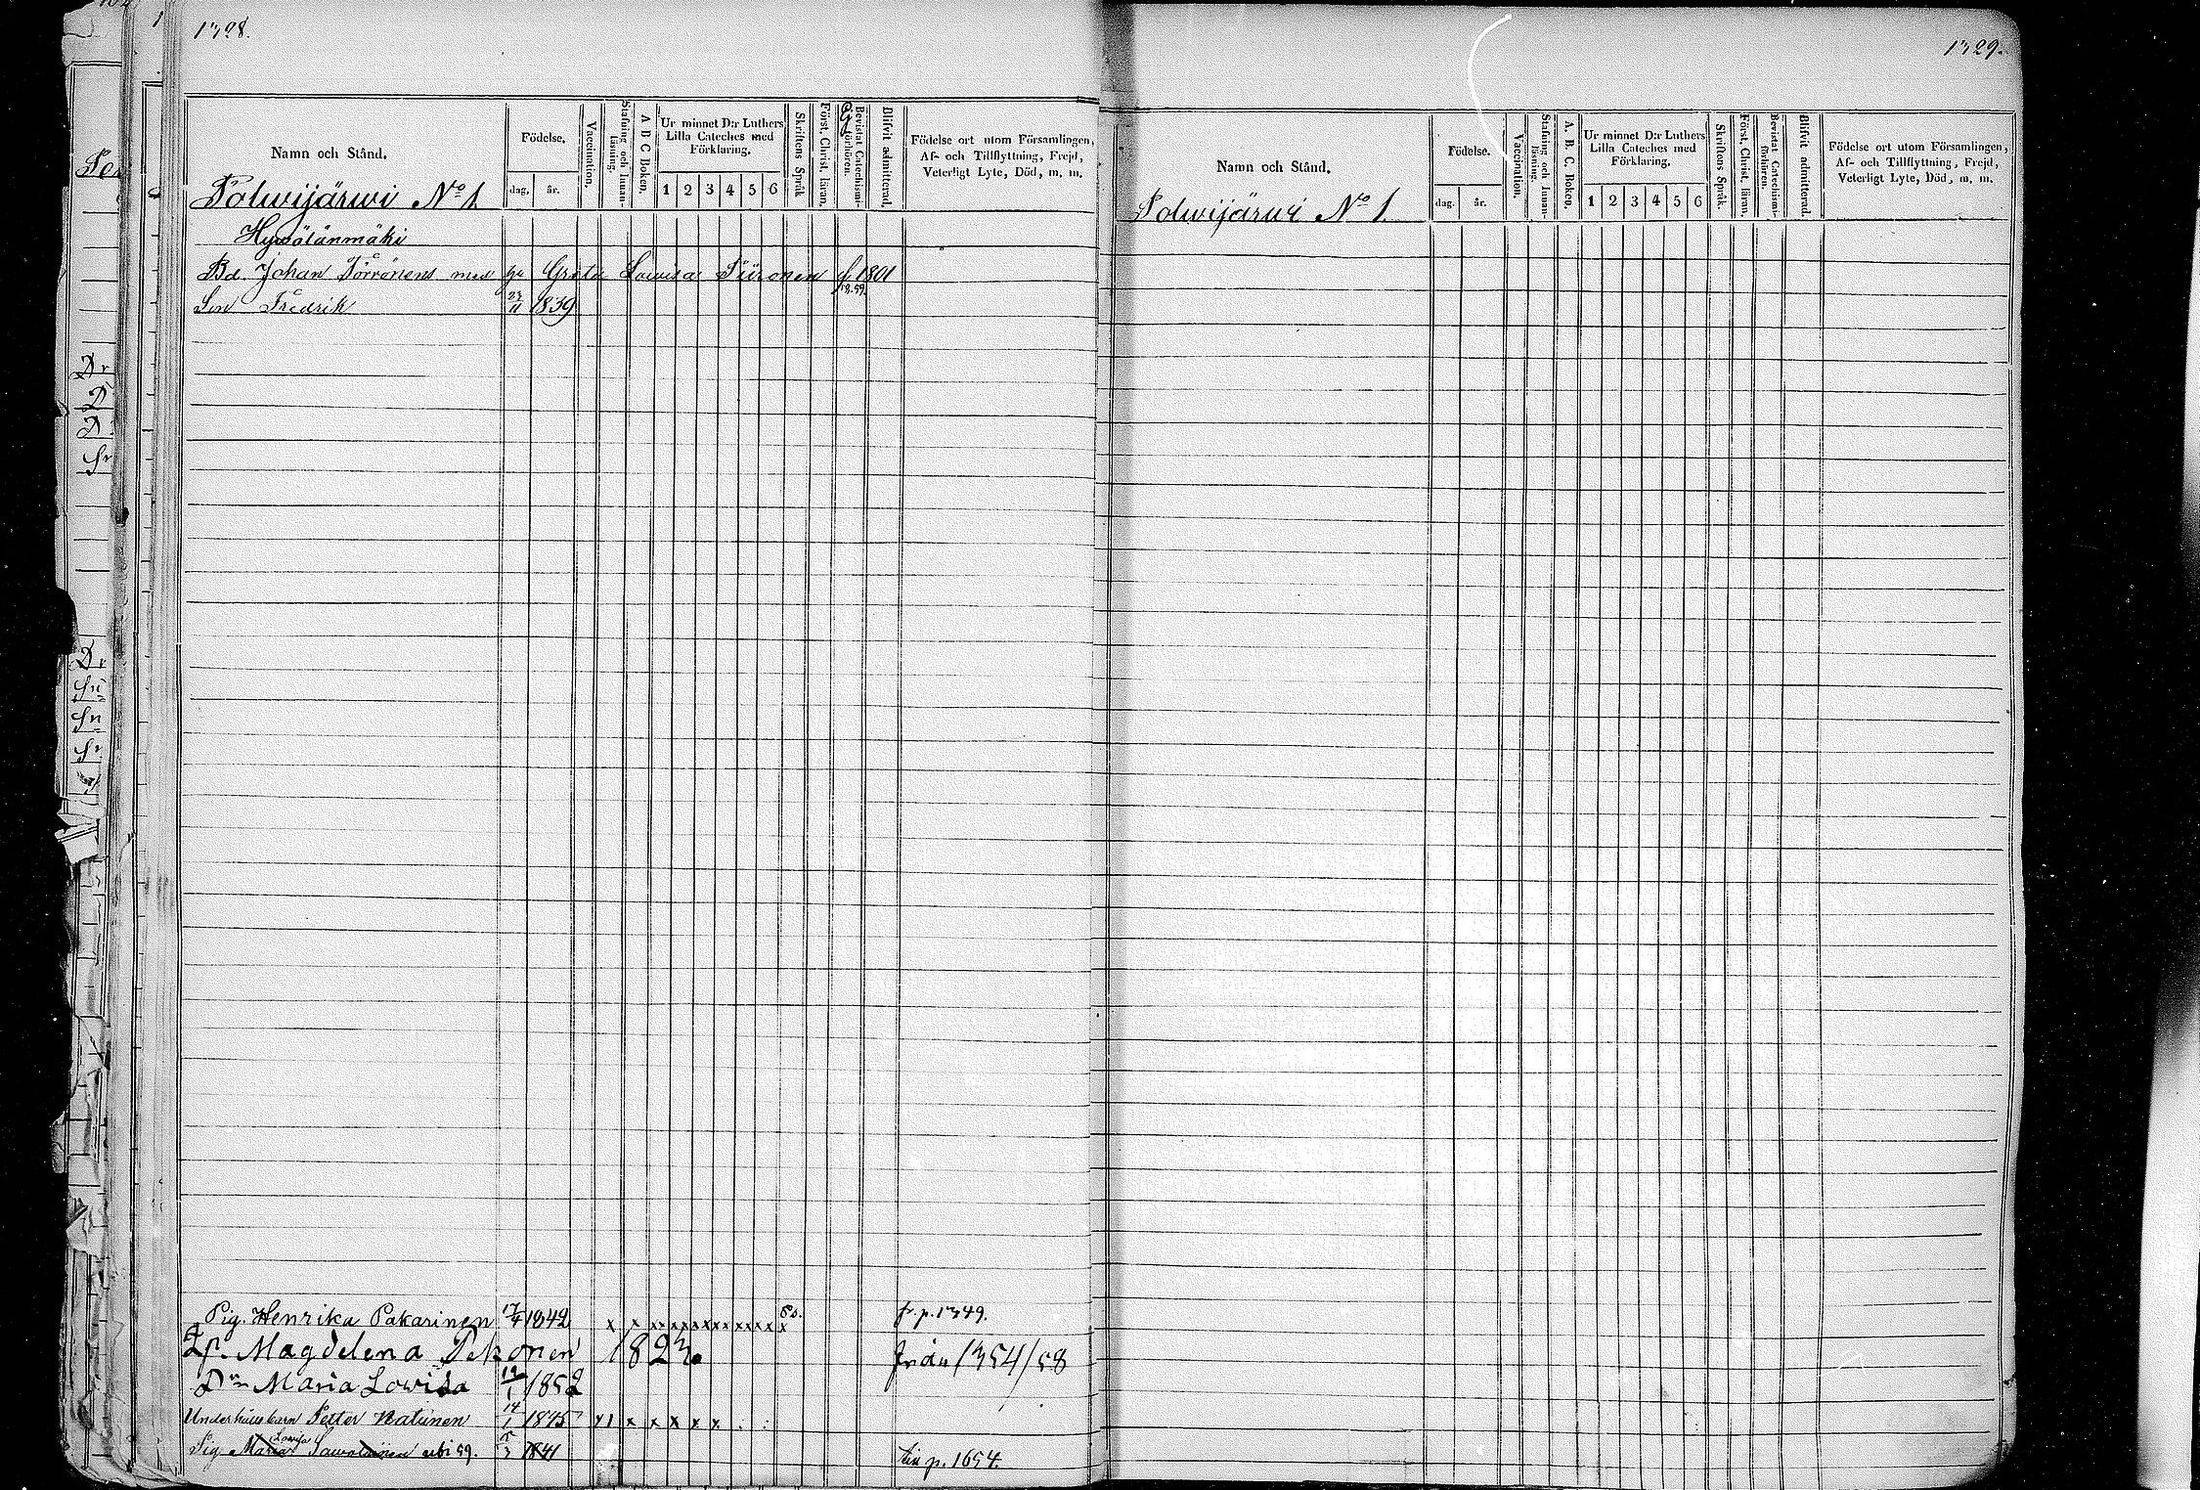 1328.
Namn och Stånd.
Födelse.
dag. år.
Vaccination.
Stafning och Innanläsning.
A B C Boken.
Ur minnet D:r Luthers Lilla Cateches med Förklaring.
1 2 3 4 5 6
Skriftens Språk
Först. Christ. läran.
Bevistat Catechismiförhören.
Blifvit admitterad.
Födelse ort utom Församlingen, Af- och Tillflyttning, Frejd, Veterligt Lyte, Död, m. m.
Polwijärwi No 1
Hywölänmäki
Bd. Johan Törrönens med Greta Lowisa Piironen f. 1801
Son Fredrik 27/11 1839
Pig. Henrika Pakarinen 17/4 1842 x x x x x x x x x x x x x x fr. p. 1349.
Magdelena Pekonen 1823. 1354/58
Dr Maria Lowisa 19/1 1852
Petter Natunen 14/1 1845 x x x x x
Pig. Maria Lowisa Sawolainen ubi 59. 1841 p. 1654.
1329.
Namn och Stånd.
Födelse.
dag. år.
Vaccination.
Stafning och Innanläsning.
A. B. C. Boken.
Ur minnet D:r Luthers Lilla Cateches med Förklaring.
1 2 3 4 5 6
Skriftens Språk.
Först. Christ. läran.
Bevistat Catechismiförhören.
Blifvit admitterad.
Födelse ort utom Församlingen, Af- och Tillflyttning, Frejd, Veterligt Lyte, Död, m. m.
Polwijärwi No 1.